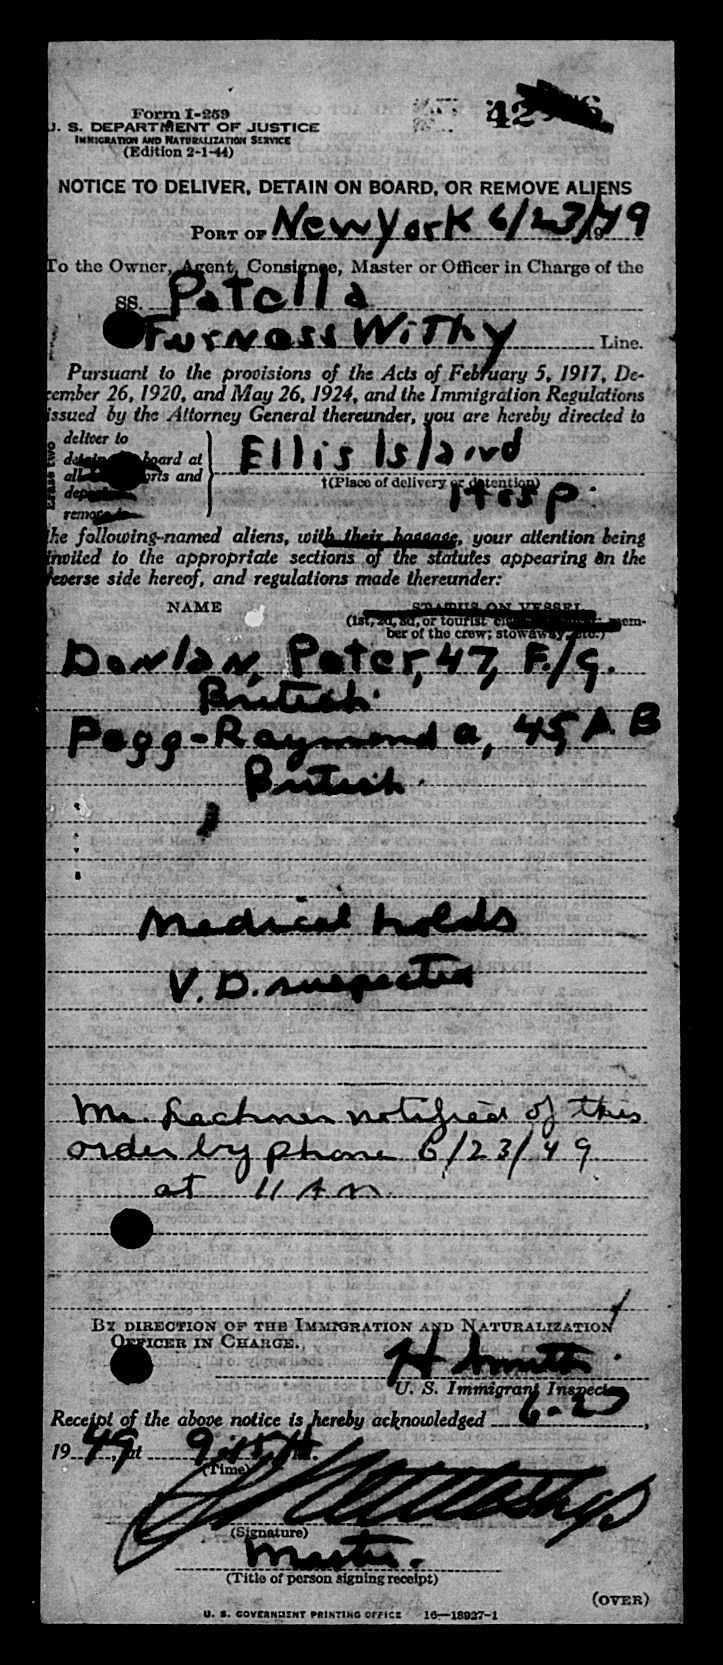 Form I-259
U. S. DEPARTMENT OF JUSTICE
IMMIGRATION AND NATURALIZATION SERVICE
(Edition 2-1-44)
NOTICE TO DELIVER, DETAIN ON BOARD, OR REMOVE ALIENS
PORT OF New York 6/23/49
To the Owner, Agent, Consignee, Master or Officer in Charge of the
SS. Patella
Furness Withy Line.
Pursuant to the provisions of the Acts of February 5, 1917, De-
cember 26, 1920, and May 26, 1924, and the Immigration Regulations
issued by the Attorney General thereunder, you are hereby directed to
deliver to
board at Ellis Island
and
†(Place of delivery or detention)
Erase two
the following-named aliens, with their baggage, your attention being
invited to the appropriate sections of the statutes appearing on the
reverse side hereof, and regulations made thereunder:
NAME STATUS ON VESSEL
(1st, 2d, 3d, or tourist mem-
ber of the crew; stowaway, etc.)
Donlan, Peter, 47, F./G.
British
Pegg-Raymond A, 45, A.B
British
Medical holds
V.D. suspected
Mr. Lachner notified of this
order by phone 6/23/49
at 11 AM
BY DIRECTION OF THE IMMIGRATION AND NATURALIZATION
OFFICER IN CHARGE.
H Smith
U. S. Immigrant Inspector
Receipt of the above notice is hereby acknowledged 6-23,
1949, at 9:15 A.
(Time)
(Signature)
Master.
(Title of person signing receipt)
(OVER)
U. S. GOVERNMENT PRINTING OFFICE 16—18927-1